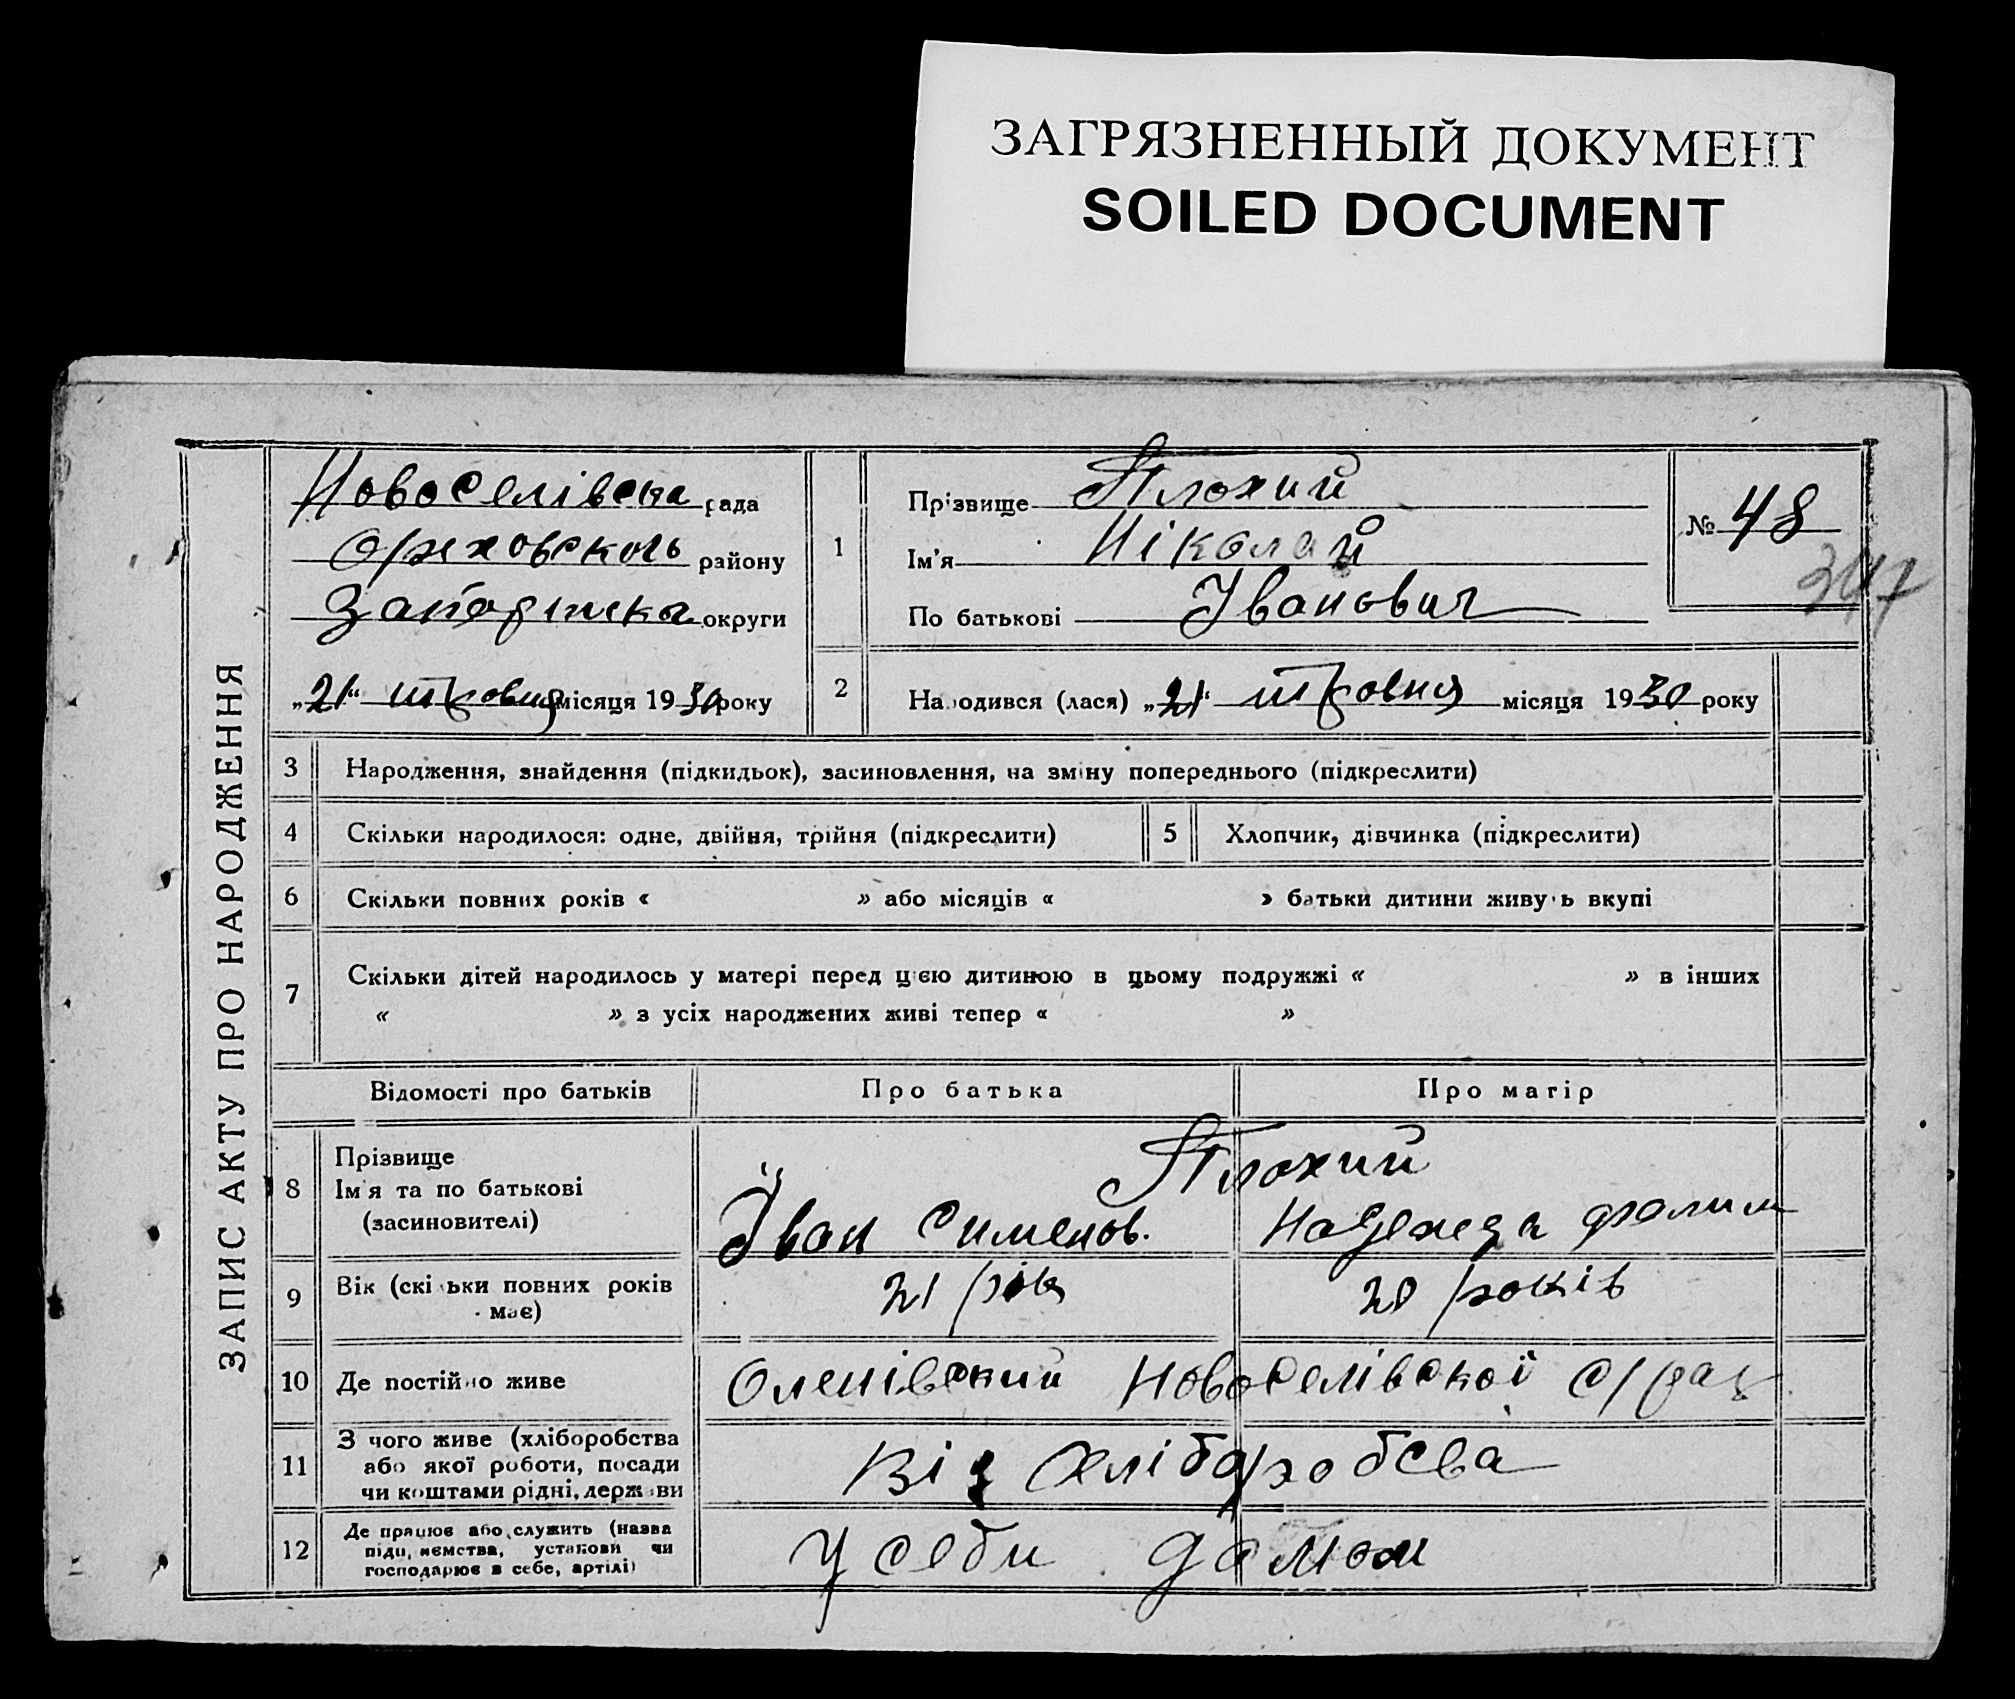 ЗАГРЯЗНЕННЫЙ ДОКУМЕНТ
SOILED DOCUMENT
ЗАПИС АКТУ ПРО НАРОДЖЕННЯ
Новоселівска рада
Ореховского району
округи
„21“ травня місяця 1930 року
1
Прізвище Плохий
Ім’я Ніколай
По батькові Іванович
№ 48
347
2
Народився (лася) „21“ травня місяця 1930 року
3 Народження, знайдення (підкидьок), засиновлення, на зміну попереднього (підкреслити)
4 Скільки народилося: одне, двійня, трійня (підкреслити)
5 Хлопчик, дівчинка (підкреслити)
6 Скільки повних років « » або місяців « » батьки дитини живуть вкупі
7 Скільки дітей народилось у матері перед цією дитиною в цьому подружжі « » в інших
« » з усіх народжених живі тепер « »
Відомості про батьків Про батька Про матір
8 Прізвище
Ім’я та по батькові
(засиновителі)
Плохий
Іван Сименов. Надежда
9 Вік (скільки повних років
має)
21 рік 20 років
10 Де постійно живе Оленівский Новоселівскої с/рад
11 З чого живе (хліборобства
або якої роботи, посади
чи коштами рідні, держави
Від хліборобсва
12 Де працює або служить (назва
підприємства, установи чи
господарює в себе, артілі)
У себи дома